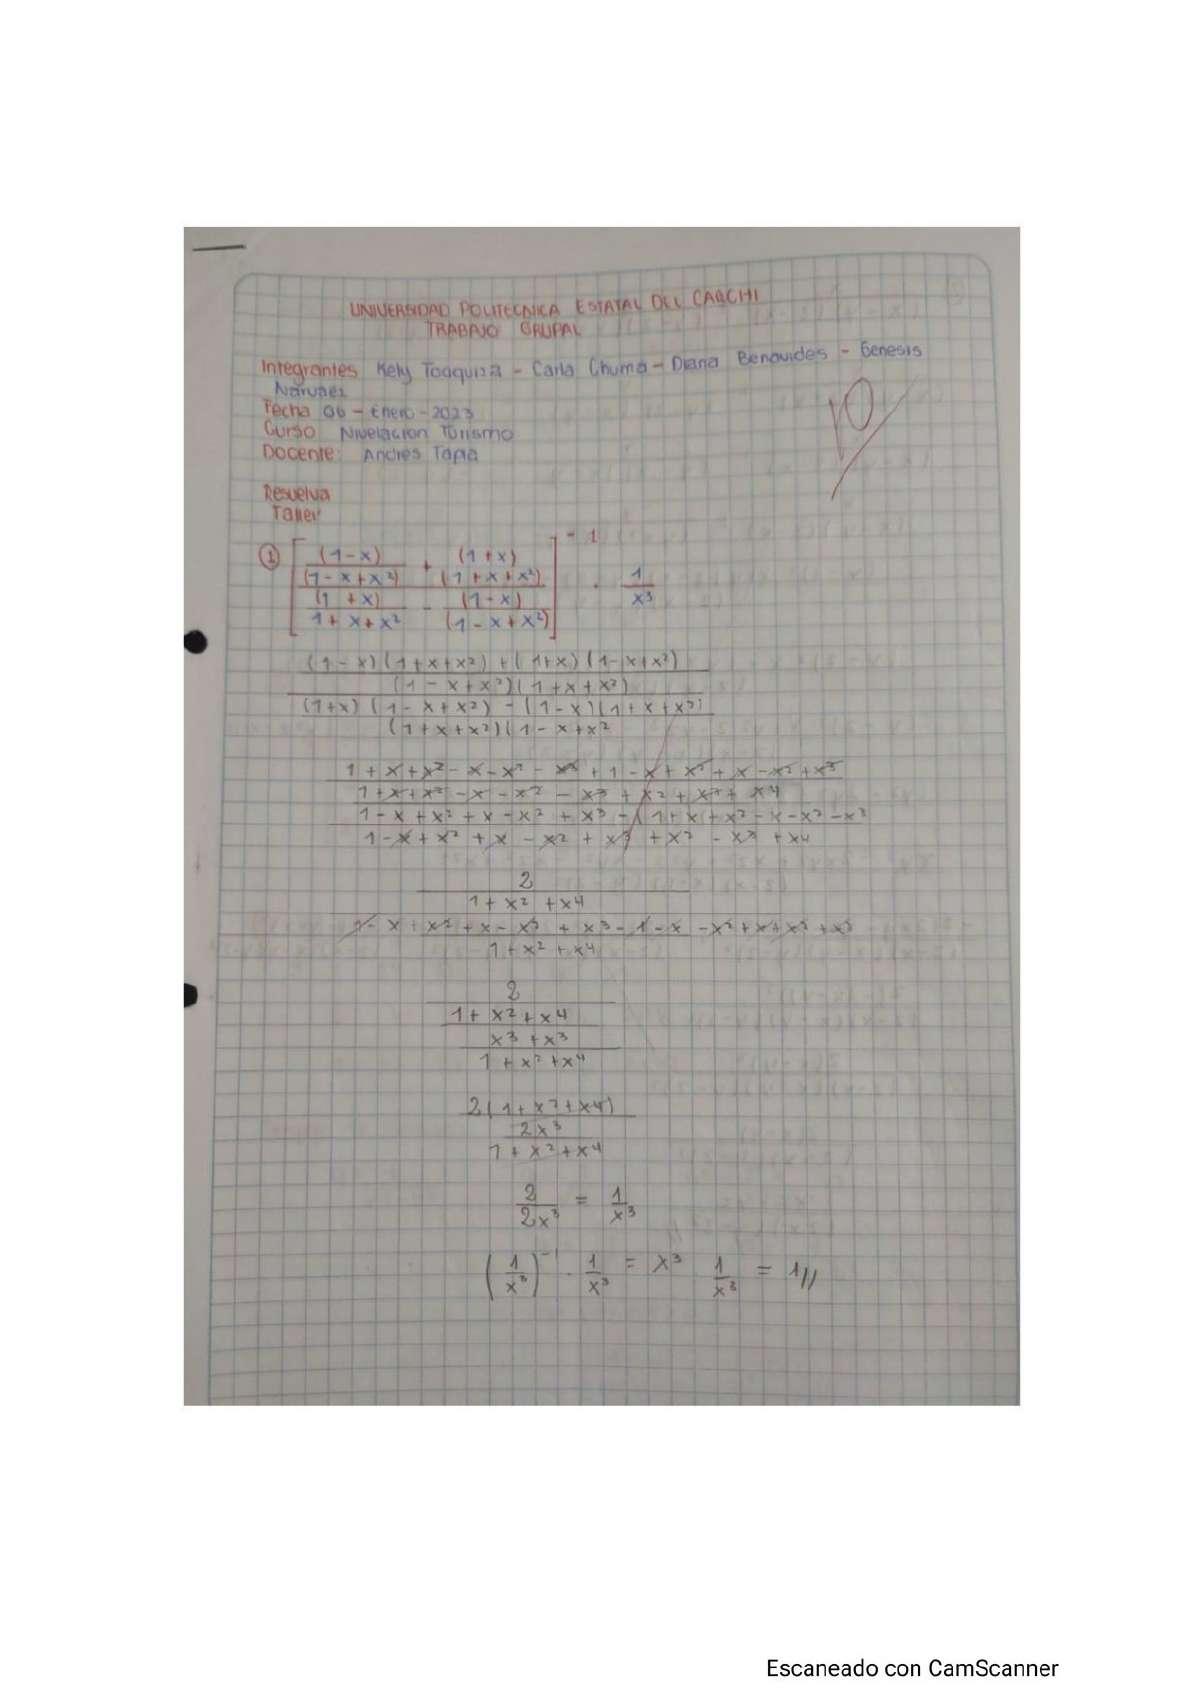 UNIVERSIDAD POLITECNICA ESTATAL DEL CARCHI
TRABAJO GRUPAL
Integrantes Kely Toaquiza - Carla Chuma - Diana Benavides - Genesis
Narvaez
Fecha 06 - Enero - 2023
Curso Nivelacion Turismo
Docente: Andres Tapia
10
Resuelva
Taller
① [ (1-x) / (1-x+x²) + (1+x) / (1+x+x²)
(1+x) / 1+x+x² - (1-x) / (1-x+x²) ]⁻¹ · 1/x³
(1-x)(1+x+x²)+(1+x)(1-x+x²)
(1-x+x²)(1+x+x²)
(1+x)(1-x+x²)-(1-x)(1+x+x²)
(1+x+x²)(1-x+x²
1+x+x²-x-x²-x³+1-x+x²+x-x²+x³
1+x+x²-x-x²-x³+x²+x³+x4
1-x+x²+x-x²+x³-(1+x+x²-x-x²-x³
1-x+x²+x-x²+x³+x²-x³+x4
2
1+x²+x4
1-x+x²+x-x³+x³-1-x-x²+x+x²+x³
1+x²+x4
2
1+x²+x4
x³+x³
1+x²+x4
2(1+x²+x4)
2x³
1+x²+x4
2/2x³ = 1/x³
(1/x³)⁻¹ · 1/x³ = x³ 1/x³ = 1//
Escaneado con CamScanner